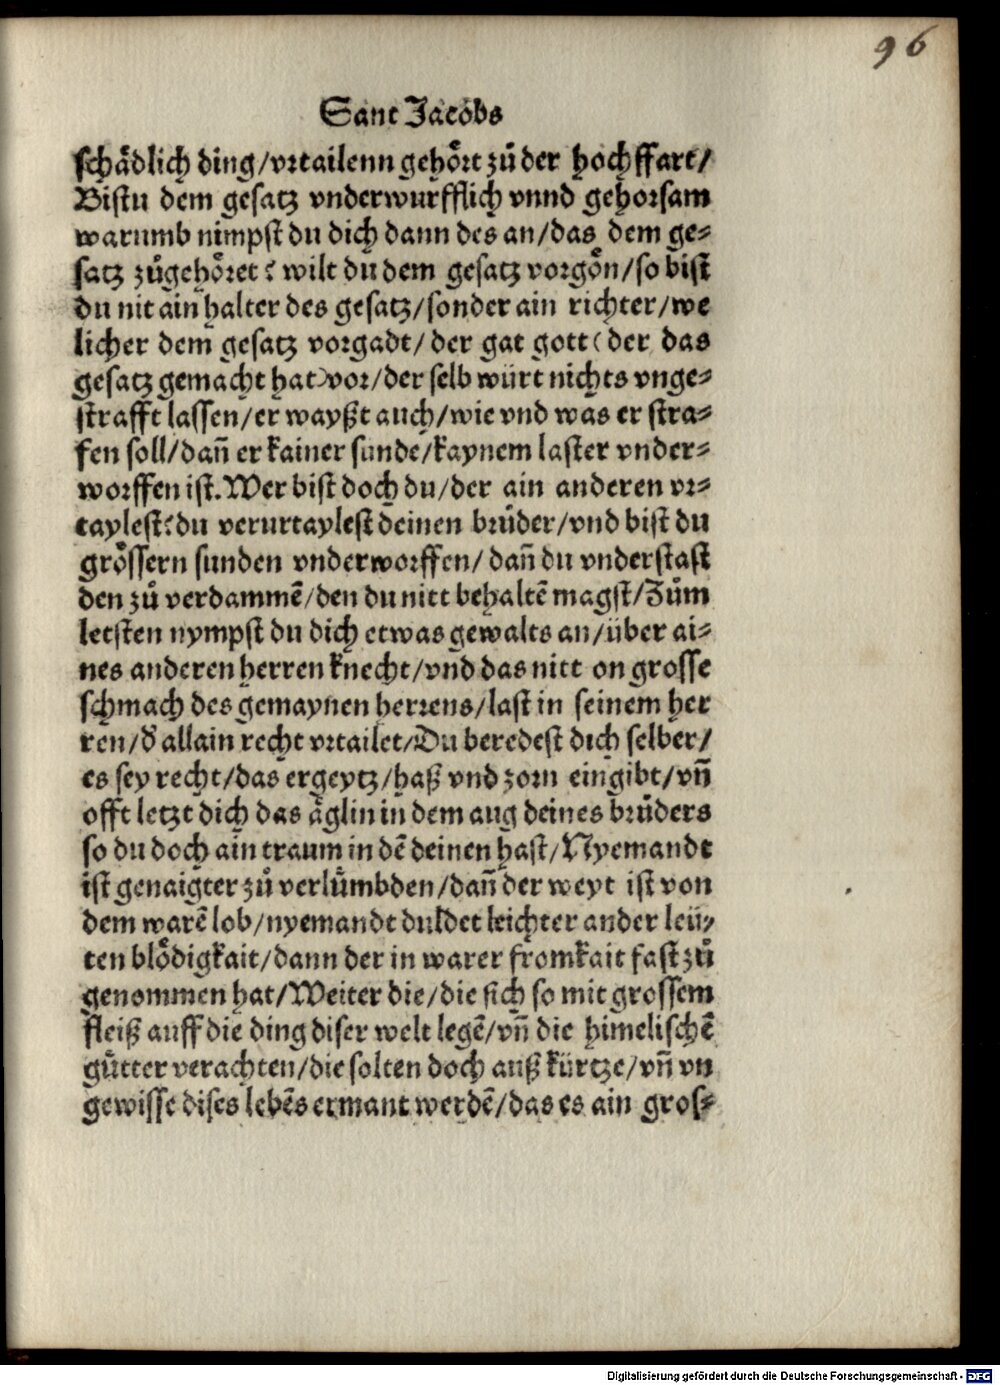 96
Sant Jacobs
schädlich ding/vrtailenn gehoͤrt zuͦ der hochffart/
Bistu dem gesatz vnderwurfflich vnnd gehorsam
warumb nimpst du dich dann des an/das dem ge⸗
satz zuͦgehoͤret? wilt du dem gesatz vorgoͤn/so bist
du nit ain halter des gesatz/sonder ain richter/we
licher dem gesatz vorgadt/der gat gott(der das
gesatz gemacht hat)vor/der selb würt nichts vnge⸗
strafft lassen/er wayßt auch/wie vnd was er stra⸗
fen soll/dañ er kainer sunde/kaynem laster vnder⸗
worffen ist. Wer bist doch du/der ain anderen vr⸗
taylest? du verurtaylest deinen bruͦder/vnd bist du
groͤssern sunden vnderworffen/dañ du vnderstast
den zuͦ verdammē/den du nitt behaltē magst/Zuͦm
letsten nympst du dich etwas gewalts an/über ai⸗
nes anderen herren knecht/vnd das nitt on grosse
schmach des gemaynen herrens/last in seinem her
ren/d̕ allain recht vrtailet/Du beredest dich selber/
es sey recht/das er geytz/haß vnd zorn eingibt/vñ
offt letzt dich das aͤglin in dem aug deines bruͦders
so du doch ain traum in dē deinen hast/Nyemandt
ist genaigter zuͦ verlümbden/dañ der weyt ist von
dem warē lob/nyemandt duldet leichter ander leü⸗
ten bloͤdigkait/dann der in warer fromkait fast zuͦ
genommen hat/Weiter die/die sich so mit grossem
fleiß auff die ding diser welt legē/vñ die himelischē
guͤtter verachten/die solten doch auß kürtze/vñ vn
gewisse dises lebēs ermant werdē/das es ain gros⸗
Digitalisierung gefördert durch die Deutsche Forschungsgemeinschaft - DFG